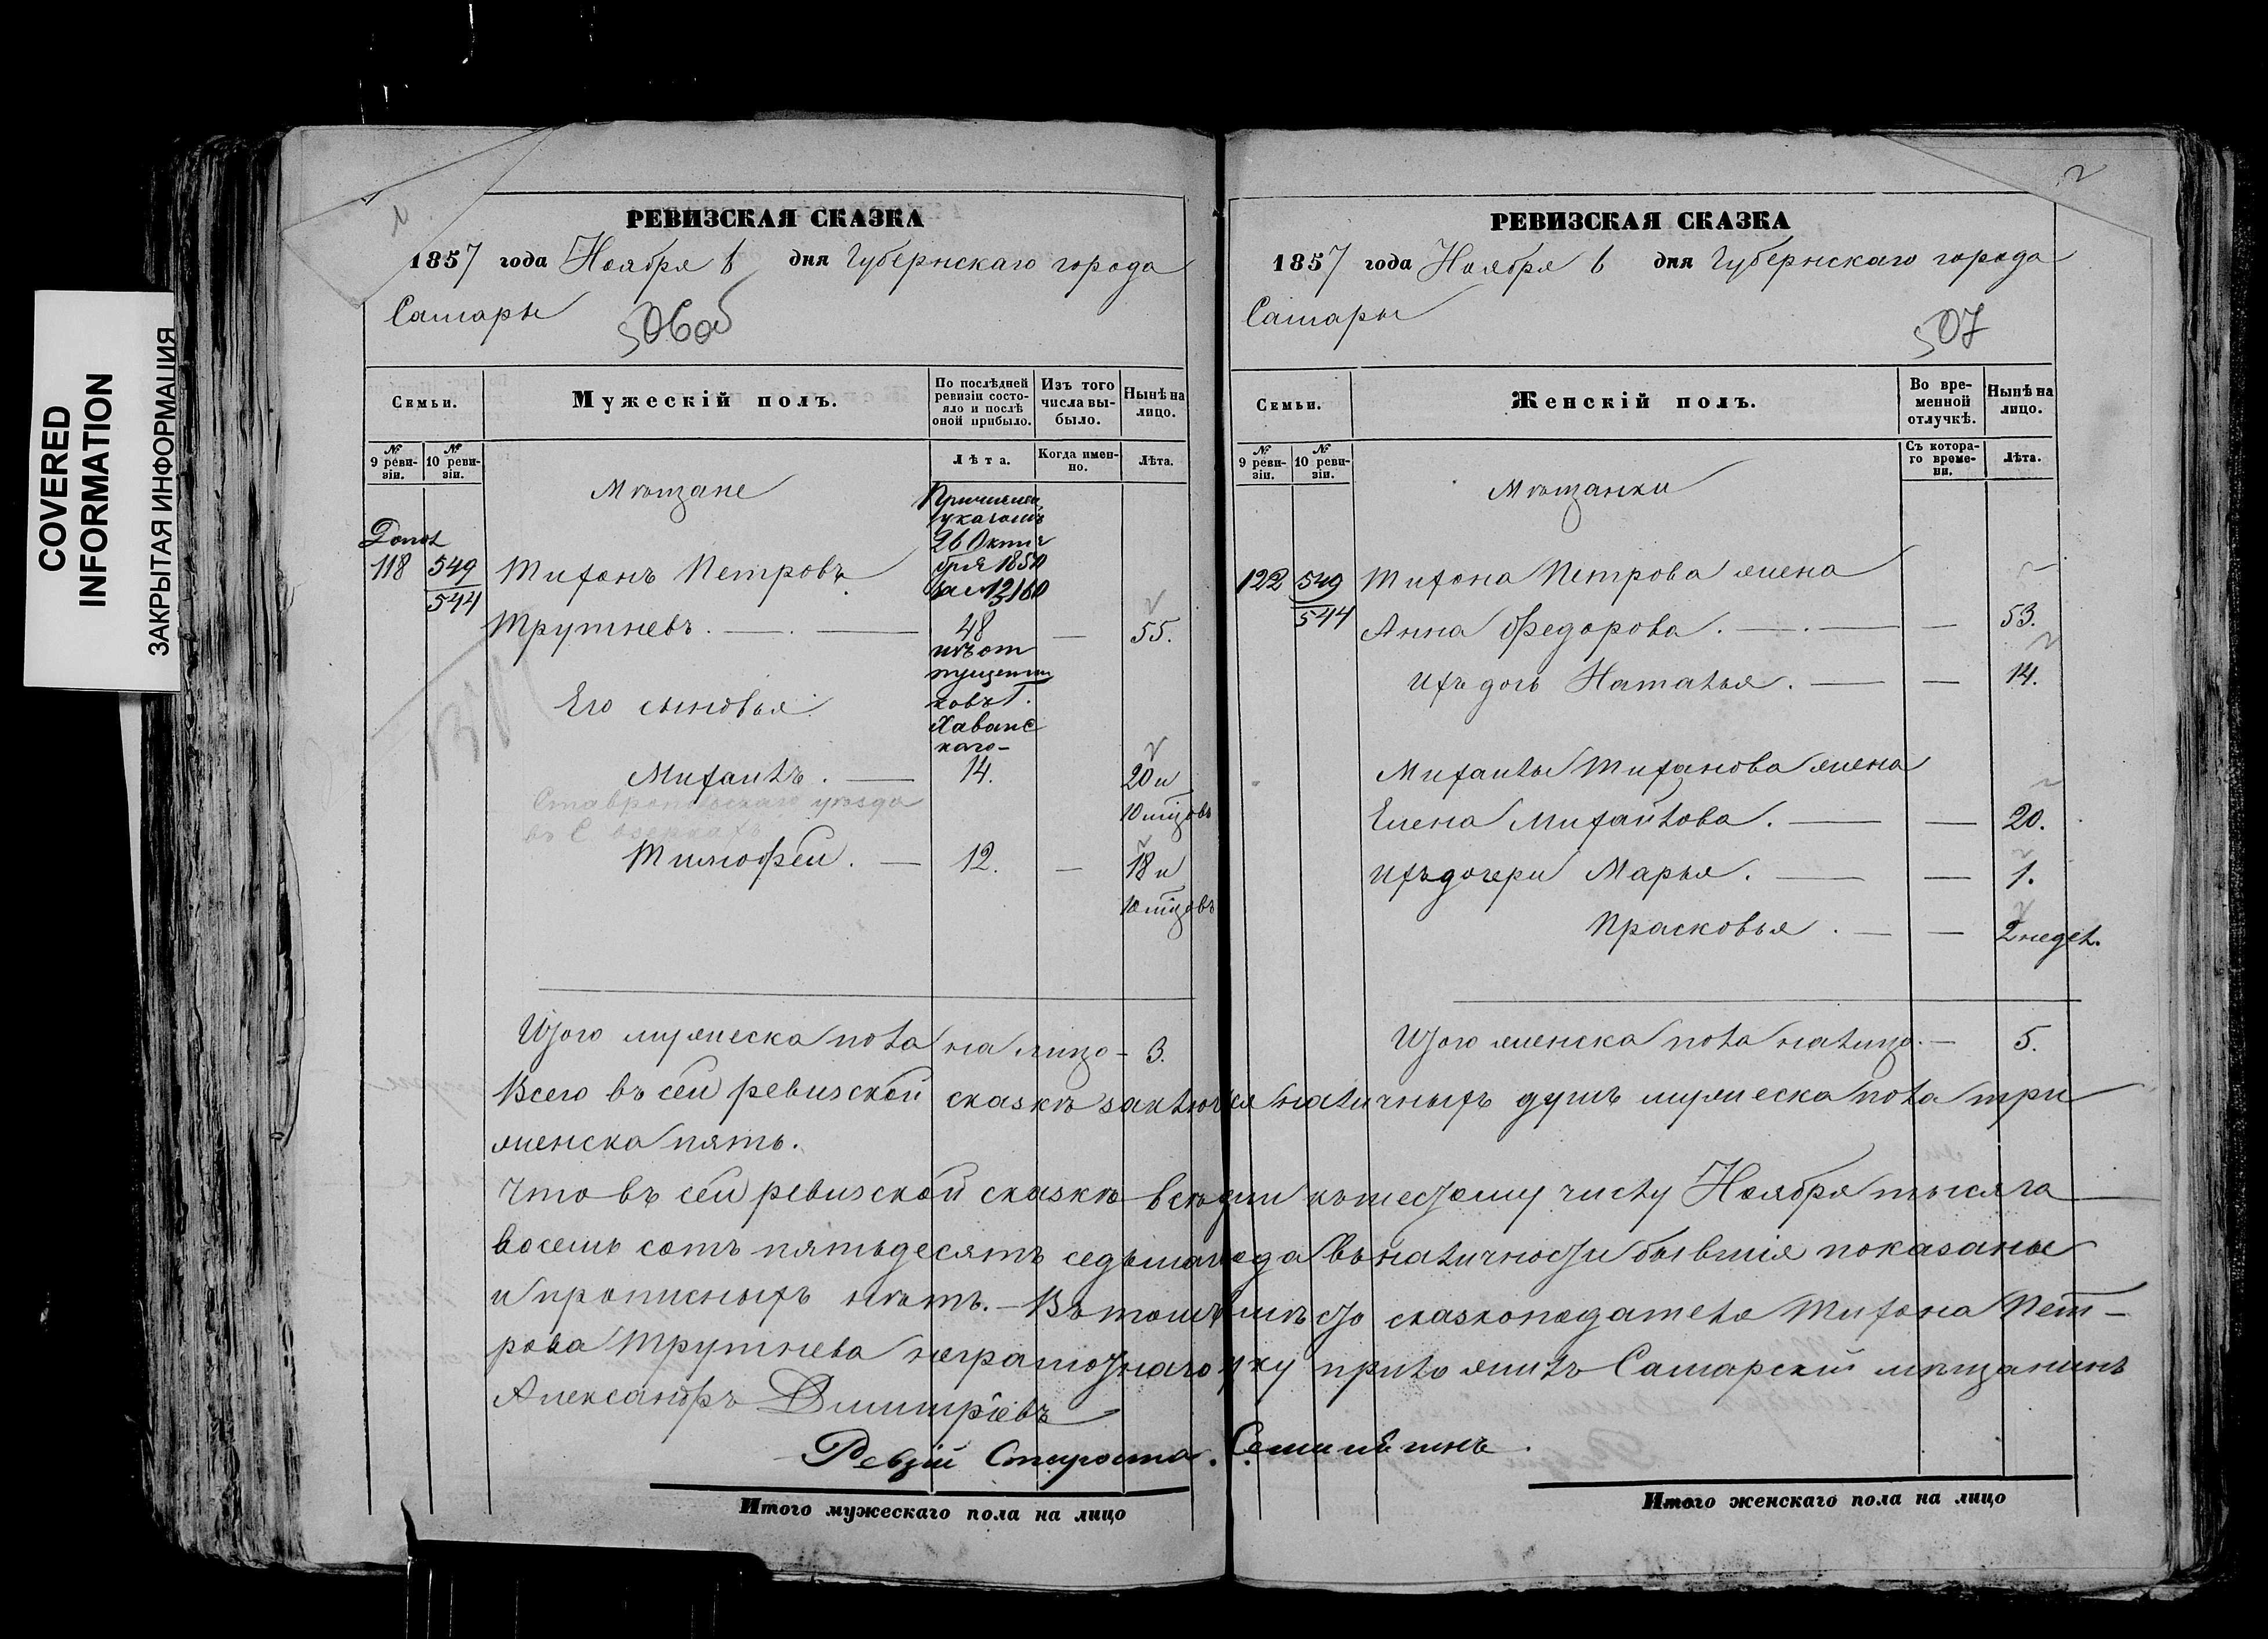 COVERED
INFORMATION
ЗАКРЫТАЯ ИНФОРМАЦИЯ
РЕВИЗСКАЯ СКАЗКА
1857 года Ноября 6 дня Губернскаго города
Самары
506об
Семьи.
Мужескій полъ.
По послѣдней ревизіи состояло и послѣ оной прибыло.
Изъ того числа выбыло.
Нынѣ на лицо.
№ 9 ревизіи.
№ 10 ревизіи.
Лѣта.
Когда именно.
Лѣта.
Мѣщане
Причислен
указомъ
26 Октя
бря 1850
за № 13160
Допол
118 549 Тихонъ Петровъ
544
Трутневъ. — 48 — 55.
изъ от
пущенни
ковъ Г.
Хованс
каго
Его сыновья
Михаилъ. — 14. 20 и
10 мцовъ
Ставропольскаго уѣзда
въ С
Тимофей. — 12. — 18 и
10 мцовъ
Итого мужеска пола на лицо - 3.
РЕВИЗСКАЯ СКАЗКА
1857 года Ноября 6 дня Губернскаго города
Самары
507
Семьи.
Женскій полъ.
Во временной отлучкѣ.
Нынѣ на лицо.
№ 9 ревизіи.
№ 10 ревизіи.
Съ котораго времени.
Лѣта.
Мѣщанки
122 549 Тихона Петрова жена
544
Анна Федорова. — — 53.
Ихъ дочь Наталья. — — 14.
Михаилы Тихонова жена
Елена Михайлова. — — 20.
Ихъ дочери Марья. — — 1.
Прасковья. — — 2 недел.
Итого женска пола налицо. — 5.
Всего въ сей ревизской сказкѣ заключ наличныхъ душъ мужеска пола три
женска пять.
Что въ сей ревизской сказкѣ всѣ къ шестому числу Ноября тысяча
восемь сотъ пятьдесятъ седьмаго года въ наличности бывшія показаны
и прописныхъ нѣтъ. — Въ томъ вмѣсто сказкоподателя Тихона Пет-
рова Трутнева неграмотнаго руку приложилъ Самарскій мѣщанинъ
Александръ Дмитріевъ
Староста.
Итого мужескаго пола на лицо
Итого женскаго пола на лицо